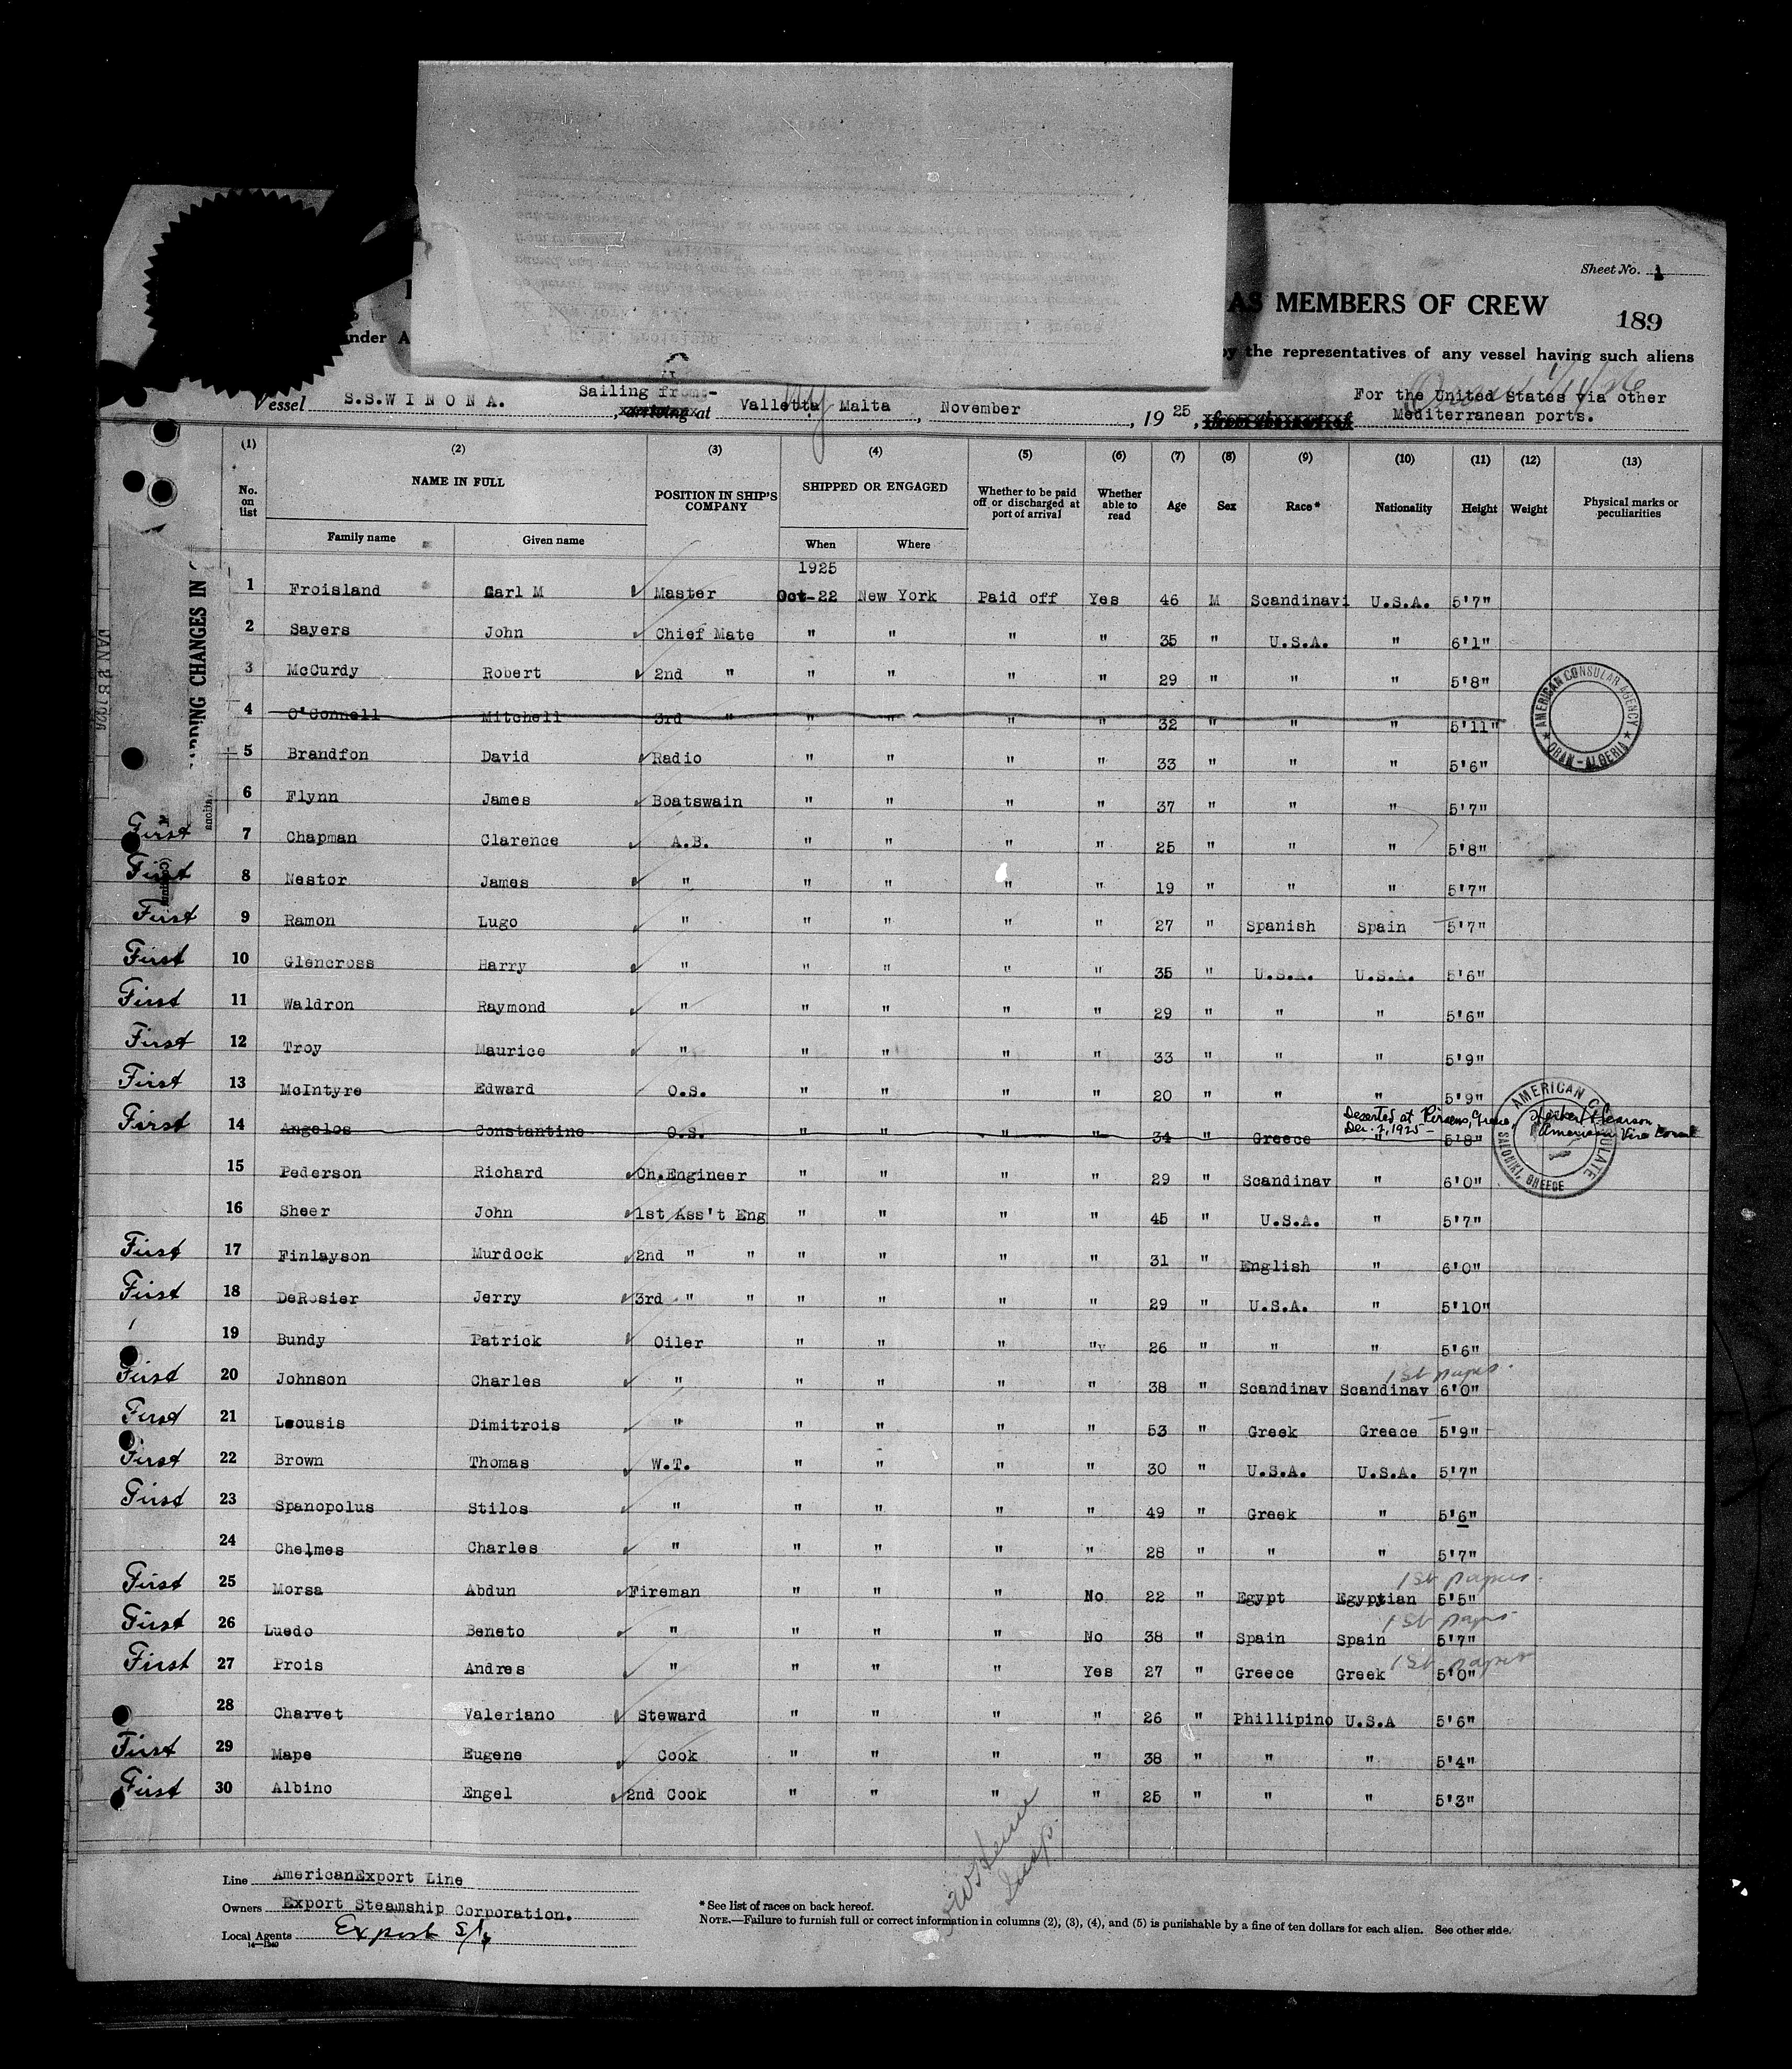 Sheet No. 1
AS MEMBERS OF CREW
189
by the representatives of any vessel having such aliens
Vessel S.S.WINONA. Sailing from- arriving at Valletta Malta, November, 1925, For the United States via other
Mediterranean ports.
ARDING CHANGES IN
(1) (2) (3) (4) (5) (6) (7) (8) (9) (10) (11) (12) (13)
No. on list NAME IN FULL POSITION IN SHIP'S COMPANY SHIPPED OR ENGAGED Whether to be paid off or discharged at port of arrival Whether able to read Age Sex Race* Nationality Height Weight Physical marks or peculiarities
Family name Given name When Where
1925
1 Froisland Carl M Master Oct-22 New York Paid off Yes 46 M Scandinavi U.S.A. 5'7"
2 Sayers John Chief Mate " " " " 35 " U.S.A. " 6'1"
3 McCurdy Robert 2nd " " " " " 29 " " " 5'8"
4 O'Connell Mitchell 3rd " " " " " 32 " " " 5'11"
AMERICAN CONSULAR AGENCY ORAN-ALGERIA
5 Brandfon David Radio " " " " 33 " " " 5'6"
6 Flynn James Boatswain " " " " 37 " " " 5'7"
First 7 Chapman Clarence A.B. " " " " 25 " " " 5'8"
First 8 Nestor James " " " " " 19 " " " 5'7"
First 9 Ramon Lugo " " " " " 27 " Spanish Spain 5'7"
First 10 Glencross Harry " " " " " 35 " U.S.A. U.S.A. 5'6"
First 11 Waldron Raymond " " " " " 29 " " " 5'6"
First 12 Troy Maurice " " " " " 33 " " " 5'9"
First 13 McIntyre Edward O.S. " " " " 20 " " " 5'9"
Deserted at Piraeus, Greece, Dec. 7, 1925
American Vice Consul
AMERICAN CONSULATE SALONIKI, GREECE
First 14 Angelos Constantine O.S. " " " " 34 " Greece " 5'8"
15 Pederson Richard Ch.Engineer " " " " 29 " Scandinav " 6'0"
16 Sheer John 1st Ass't Eng " " " " 45 " U.S.A. " 5'7"
First 17 Finlayson Murdock 2nd " " " " " " 31 " English " 6'0"
First 18 DeRosier Jerry 3rd " " " " " " 29 " U.S.A. " 5'10"
19 Bundy Patrick Oiler " " " " 26 " " " 5'6"
1st papers
First 20 Johnson Charles " " " " " 38 " Scandinav Scandinav 6'0"
First 21 Leousis Dimitrois " " " " " 53 " Greek Greece 5'9"
First 22 Brown Thomas W.T. " " " " 30 " U.S.A. U.S.A. 5'7"
First 23 Spanopolus Stilos " " " " " 49 " Greek " 5'6"
24 Chelmes Charles " " " " " 28 " " " 5'7"
1st papers
First 25 Morsa Abdun Fireman " " " No 22 " Egypt Egyptian 5'5"
1st papers
First 26 Luedo Beneto " " " " No 38 " Spain Spain 5'7"
1st papers
First 27 Prois Andres " " " " Yes 27 " Greece Greek 5'0"
28 Charvet Valeriano Steward " " " " 26 " Phillipino U.S.A 5'6"
First 29 Mape Eugene Cook " " " " 38 " " " 5'4"
First 30 Albino Engel 2nd Cook " " " " 25 " " " 5'3"
Line AmericanExport Line
Owners Export Steamship Corporation.
Local Agents Export S/S
14-1240
* See list of races on back hereof.
NOTE.—Failure to furnish full or correct information in columns (2), (3), (4), and (5) is punishable by a fine of ten dollars for each alien. See other side.